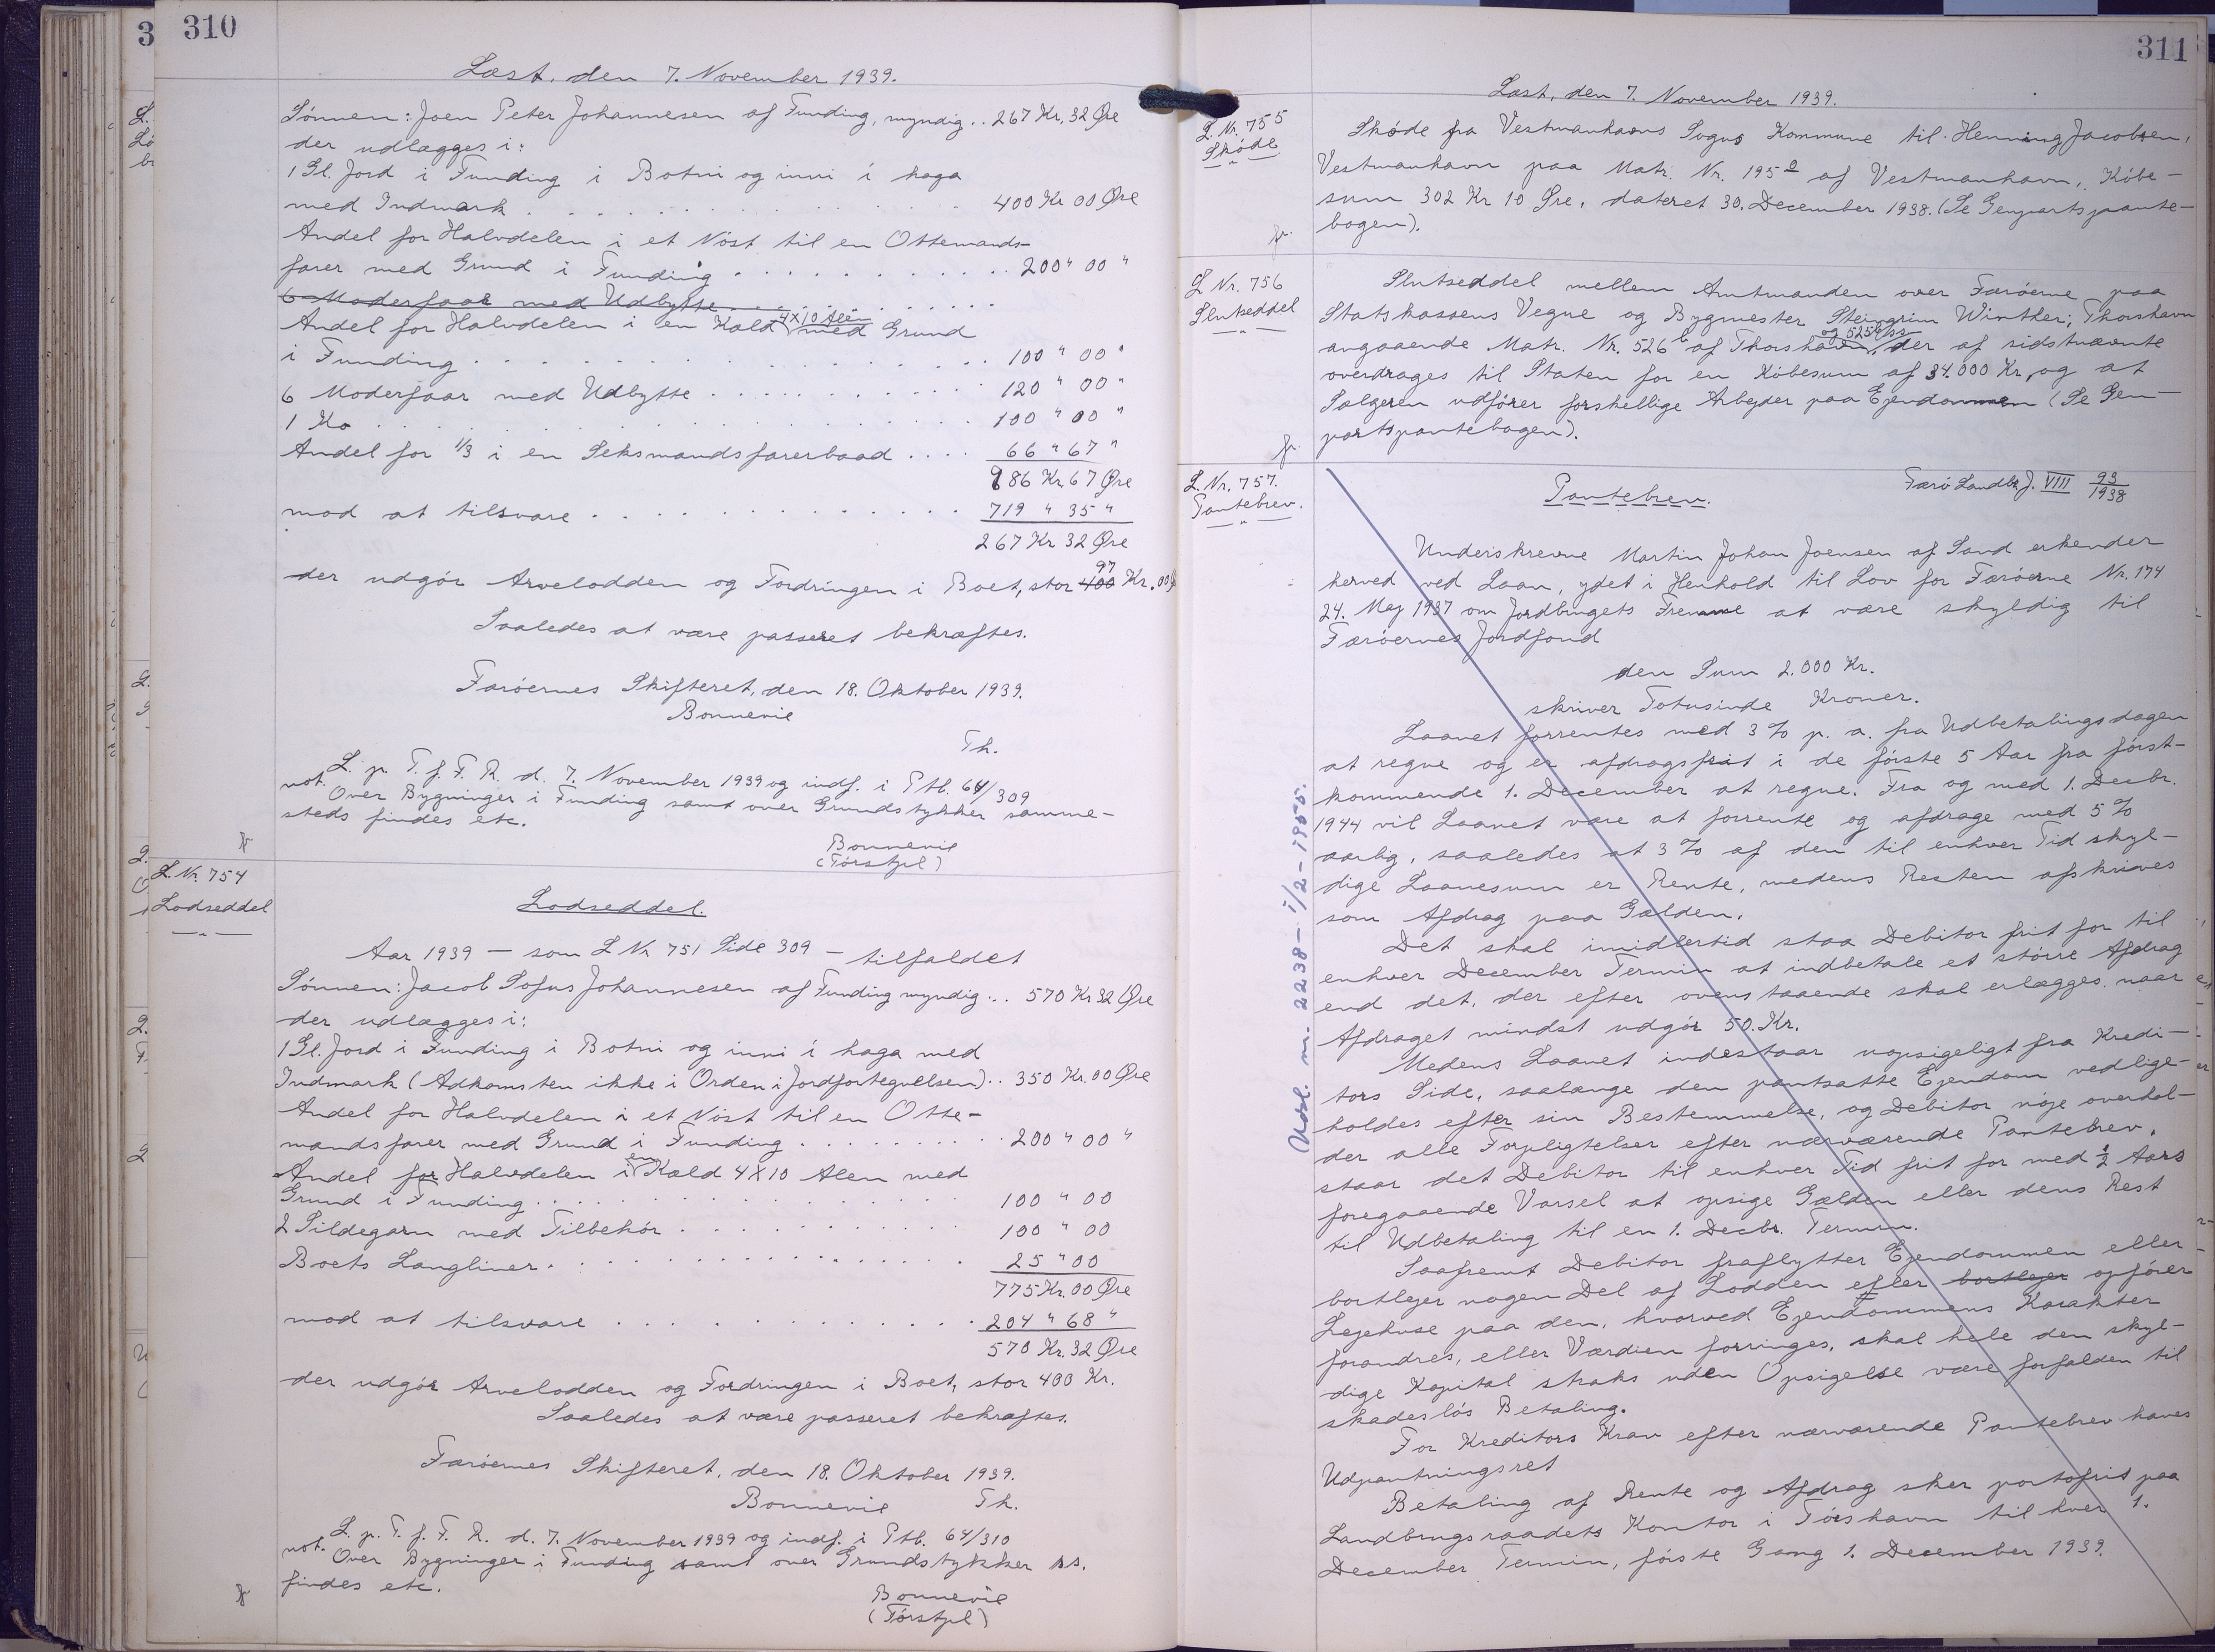 310
Læst, den 7. November 1939.
Sønnen: Joen Peter Johannesen af Funding, myndig .. 267 Kr. 32 Øre
der udlægges i:
1 Gl. Jord i Funding i Botni og inni í haga
med Indmark . . . . . . . . . . . . 400 Kr 00 Øre
Andel for Halvdelen i et Nöst til en Ottemands-
farer med Grund i Funding . . . . . . . . . . 200 " 00 "
6 Moderfaar med Udbytte . . . . . . . . .
Andel for Halvdelen i en Kald 4X10 Alen med Grund
i Funding . . . . . . . . . . . . . . . . . 100 " 00 "
6 Moderfaar med Udbytte . . . . . . . . . . . 120 " 00 "
1 Ko . . . . . . . . . . . . . . . . . . 100 " 00 "
Andel for 1/3 i en Seksmandsfarerbaad . . . . 66 " 67 "
986 Kr. 67 Øre
mod at tilsvare . . . . . . . . . . . . . . . 719 " 35 "
267 Kr 32 Øre
der udgör Arvelodden og Fordringen i Boet, stor 400 97 Kr. 00
Saaledes at være passeret bekræftes.
Færöernes Skifteret, den 18. Oktober 1939.
Bonnevie
Th.
L. p. T. f. F. R. d. 7. November 1939 og indf. i Ptb. 64/309
not. Over Bygninger i Funding samt over Grundstykker samme-
steds findes etc.
Bonnevie
(Törstpl)
L. Nr. 754
Lodseddel
Lodseddel.
Aar 1939 — som L Nr 751 Side 309 — tilfaldet
Sönnen: Jacob Sofus Johannesen af Funding myndig ... 570 Kr 32 Øre
der udlægges i:
1 Gl. Jord i Funding i Botni og inni í haga med
Indmark (Adkomsten ikke i Orden i Jordfortegnelsen) .. 350 Kr. 00 Øre
Andel for Halvdelen i et Nöst til en Otte-
mandsfarer med Grund i Funding . . . . . . . . . 200 " 00 "
Andel for Halvdelen i en Kald 4X10 Alen med
Grund i Funding . . . . . . . . . . . . . . 100 " 00
2 Sildegarn med Tilbehör . . . . . . . . . . 100 " 00
Boets Langliner . . . . . . . . . . . . . . . 25 " 00
775 Kr. 00 Øre
mod at tilsvare . . . . . . . . . . . . . 204 " 68 "
570 Kr. 32 Øre
der udgör Arvelodden og Fordringen i Boet, stor 400 Kr.
Saaledes at være passeret bekræftes.
Færöernes Skifteret, den 18. Oktober 1939.
Bonnevie Th.
L. p. T. f. F. R. d. 7. November 1939 og indf. i Ptb. 64/310
not. Over Bygninger i Funding samt over Grundstykker ss.
findes etc.
Bonnevie
(Törstpl)
311
Læst, den 7. November 1939.
L. Nr. 755
Sköde
Sköde fra Vestmanhavns Sogns Kommune til Henning Jacobsen,
Vestmanhavn paa Matr. Nr. 195 a af Vestmanhavn, Köbe-
sum 302 Kr 10 Øre, dateret 30. December 1938. (Se Genpartspante-
bogen).
L Nr. 756
Slutseddel
Slutseddel mellem Amtmanden over Færöerne paa
Statskassens Vegne og Bygmester Steingrim Winther, Thorshavn
angaaende Matr. Nr. 526 b og 525 b ss af Thorshavn, der af sidstnævnte
overdrages til Staten for en Köbesum af 34.000 Kr, og at
Sælgeren udfører forskellige Arbejder paa Ejendommen (Se Gen-
partspantebogen).
L. Nr. 757.
Pantebrev.
Pantebrev.
Færö Landbr. J. VIII 93/1938
Underskrevne Martin Johan Joensen af Sand erkender
herved ved Laan, ydet i Henhold til Lov for Færöerne Nr. 174
24. Maj 1937 om Jordbrugets Fremme at være skyldig til
Færöernes Jordfond
den Sum 2.000 Kr.
skriver Totusinde Kroner.
Laanet forrentes med 3 % p. a. fra Udbetalingsdagen
at regne og er afdragsfrit i de förste 5 Aar fra först-
kommende 1. December at regne. Fra og med 1. Decbr.
1944 vil Laanet være at forrente og afdrage med 5 %
aarlig, saaledes at 3 % af den til enhver Tid skyl-
dige Laanesum er Rente, medens Resten afskrives
som Afdrag paa Gælden.
Det skal imidlertid staa Debitor frit for til
enhver December Termin at indbetale et större Afdrag
end det, der efter ovenstaaende skal erlægges, naar
Afdraget mindst udgör 50. Kr.
Medens Laanet indestaar uopsigeligt fra Kredi-
tors Side, saalænge den pantsatte Ejendom vedlige-
holdes efter sin Bestemmelse, og Debitor nöje overhol-
der alle Forpligtelser efter nærværende Pantebrev,
staar det Debitor til enhver Tid frit for med 1/2 Aars
foregaaende Varsel at opsige Gælden eller dens Rest
til Udbetaling til en 1. Decbr. Termin.
Saafremt Debitor fraflytter Ejendommen eller
bortlejer nogen Del af Lodden eller bortlejer opförer
Lejehuse paa den, hvorved Ejendommens Karakter
forandres, eller Værdien forringes, skal hele den skyl-
dige Kapital straks uden Opsigelse være forfalden til
skadeslös Betaling.
For Kreditors Krav efter nærværende Pantebrev haves
Udpantningsret
Betaling af Rente og Afdrag sker portofrit paa
Landbrugsraadets Kontor i Tórshavn til hver 1.
December Termin, förste Gang 1. December 1939.
Udsl. nr. 2238 - 1/2 - 1955.